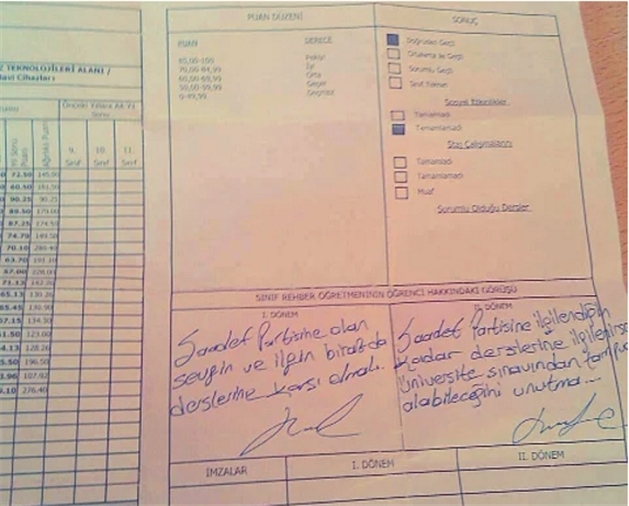 PUAN DÜZENİ
SONUÇ
PUAN DERECE
Pekiyi
70,00-84,99 İyi
60,00-69,99 Orta
50,00-59,99 Geçer
0-49,99 Geçmez
Doğrudan Geçti
Ortalama ile Geçti
Sorumlu Geçti
Sınıf Tekrarı
Sosyal Etkinlikler
Tamamladı
Tamamlamadı
Staj Çalışmalarını
Tamamladı
Tamamlamadı
Muaf
Sorumlu Olduğu Dersler
TEKNOLOJİLERİ ALANI /
Cihazları
Yıl Sonu Puanı
Ağırlıklı Puanı
9. Sınıf
10. Sınıf
11. Sınıf
72.50
60.50
90.25 90.25
89.50 179.00
87.25 174.50
74.70
70.10
63.70
57.00 228.00
71.13
65.13 130.26
65.45 130.90
67.15 134.30
61.50 123.00
128.26
196.50
107.92
276.40
SINIF REHBER ÖĞRETMENİNİN ÖĞRENCİ HAKKINDAKİ GÖRÜŞÜ
I. DÖNEM
Saadet Partisine olan
sevgin ve ilgin biraz da
derslerine karşı olmalı.
II. DÖNEM
Saadet Partisine ilgilendiğin
kadar derslerine
üniversite sınavından tam
alabileceğini unutma...
İMZALAR
I. DÖNEM
II. DÖNEM